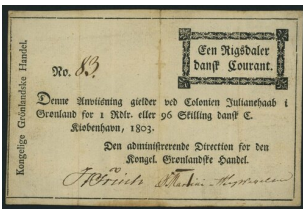 Kongelige Grönlandske Handel.
No. 83.
Een Rigsdaler
dansk Courant.
Denne Anviisning gielder ved Colonien Julianehaab i
Grønland for 1 Rdlr. eller 96 Skilling dansk C.
Kiøbenhavn, 1803.
Den administrerende Direction for den
Kongel. Grønlandske Handel.